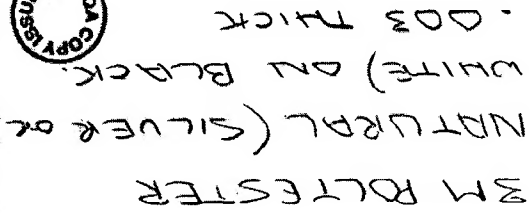 3M POLYESTER
NATURAL (SILVER OR
WHITE) ON BLACK.
.003 THICK
QA COPY ISSU